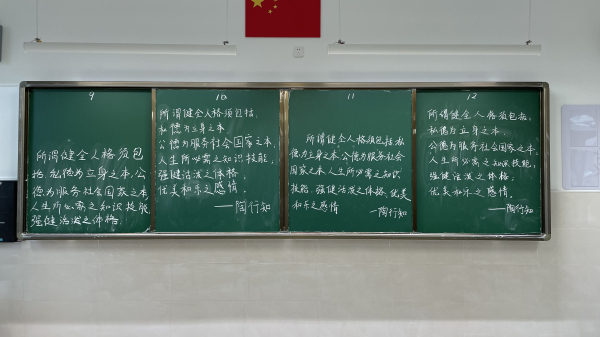 9
所谓健全人格须包
括，私德为立身之本，公
德为服务社会国家之本，
人生所必需之知识技能，
强健活泼之体格。
10
所谓健全人格须包括，
私德为立身之本
公德为服务社会国家之本，
人生所必需之知识技能，
强健活泼之体格，
优美和乐之感情。
——陶行知
11
所谓健全人格须包括：私
德为立身之本，公德为服务社会
国家之本，人生所必需之知识
技能，强健活泼之体格，优美
和乐之感情
—陶行知
12
所谓健全人格须包括，
私德为立身之本，
公德为服务社会国家之本，
人生所必需之知识技能，
强健活泼之体格，
优美和乐之感情。
——陶行知